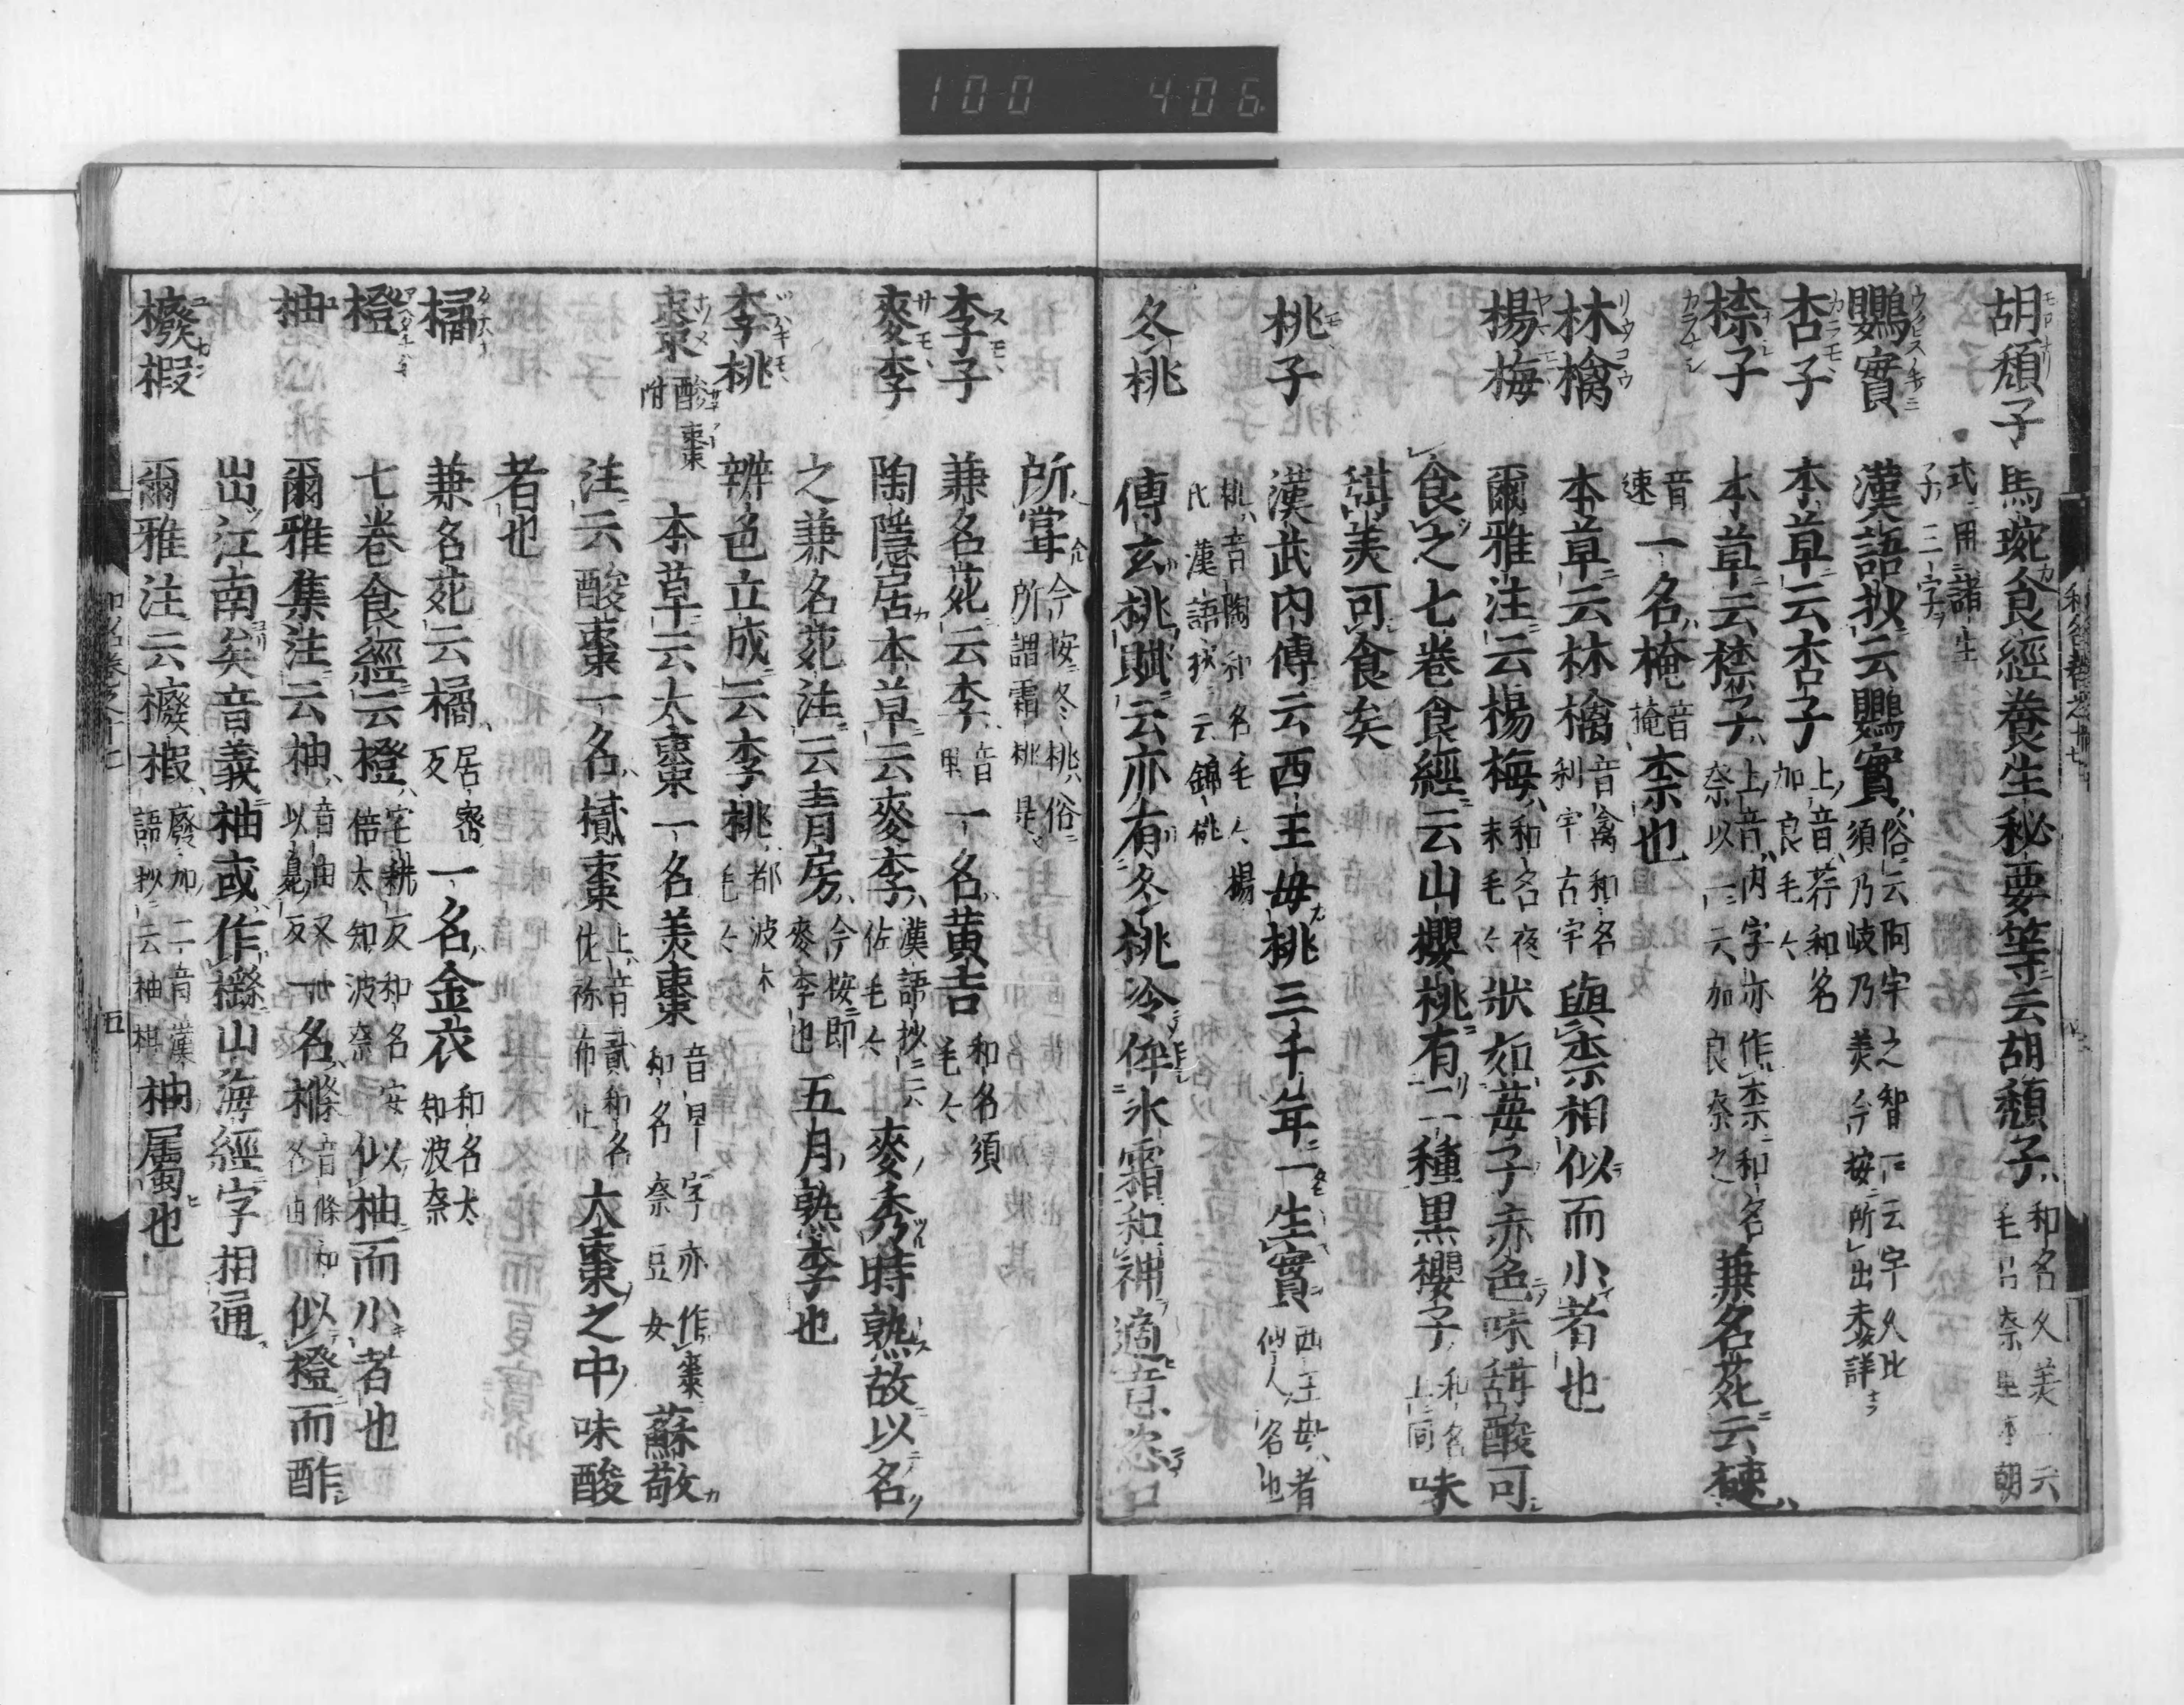 100 406
胡頽子 馬琬食經養生秘要等云胡頽子和名久美一云毛呂奈里本朝
式用諸生子三字
鸎實 漢語抄云鸎實俗云阿宇之智一云宇久比須乃岐乃美今按所出未詳
杏子 本草云杏子上音荇和名加良毛々
㮈子 本草云㮈子上音内字亦作柰和名奈以一云加良奈之兼名苑云㯈
音速一名㭺音掩柰也
林檎 本草云林檎音禽和名利宇古宇與柰相似而小者也
楊梅 爾雅注云楊梅和名夜末毛々狀如苺子赤色味甜酸可
食之七卷食經云山櫻桃有二種黒櫻子和名上同味
甜美可食矣
桃子 漢武内傳云西王母桃三千年一生實西王母者仙人名也
桃音陶和名毛々楊氏漢語抄云錦桃
冬桃 傅玄桃賦云亦有冬桃冷侔氷霜和神適意恣口
所甞今按冬桃俗所謂霜桃是
李子 兼名苑云李音里一名黄吉和名須毛々
麥李 陶隱居本草云麥李漢語抄云佐毛々麥秀時熟故以名
之兼名苑注云青房今按即麥李也五月熟李也
李桃 辨色立成云李桃都波木毛々
棗 酸棗附 本草云大棗一名美棗音早字亦作棗和名奈豆女蘇敬
注云酸棗一名樲棗上音貳和名佐祢布止大棗之中味酸
者也
橘 兼名苑云橘居密反一名金衣和名太知波奈
橙 七卷食經云橙宅耕反和名安倍太知波奈似柚而小者也
柚 爾雅集注云柚音由又以臭反一名樤音條和名由似橙而酢
出江南矣音義柚或作櫾山海經字相通
櫠椵 爾雅注云櫠椵廢加二音漢語抄云柚柑柚屬也
五